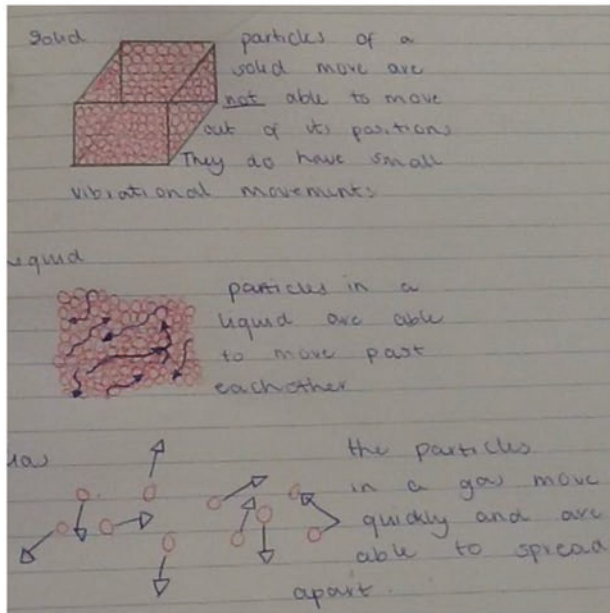 Solid
particles of a
solid move are
not able to move
out of its positions
They do have small
vibrational movements
iquid
particles in a
liquid are able
to move past
eachother
as
the particles
in a gas move
quickly and are
able to spread
apart.